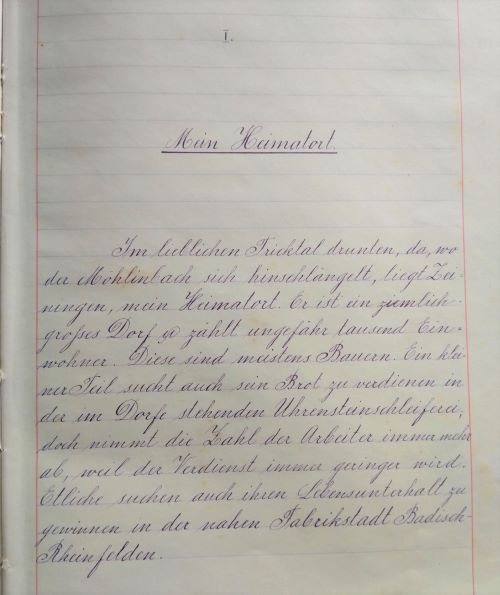 I.
Mein Heimatort.
Im lieblichen Fricktal drunten, da, wo
der Möhlinbach sich hinschlängelt, liegt Zei-
ningen, mein Heimatort. Er ist ein ziemlich
großes Dorf & zählt ungefähr tausend Ein-
wohner. Diese sind meistens Bauern. Ein klei-
ner Teil sucht auch sein Brot zu verdienen in
der im Dorfe stehenden Uhrensteinschleiferei,
doch nimmt die Zahl der Arbeiter immer mehr
ab, weil der Verdienst immer geringer wird.
Etliche suchen auch ihren Lebensunterhalt zu
gewinnen in der nahen Fabrikstadt Badisch-
Rheinfelden.